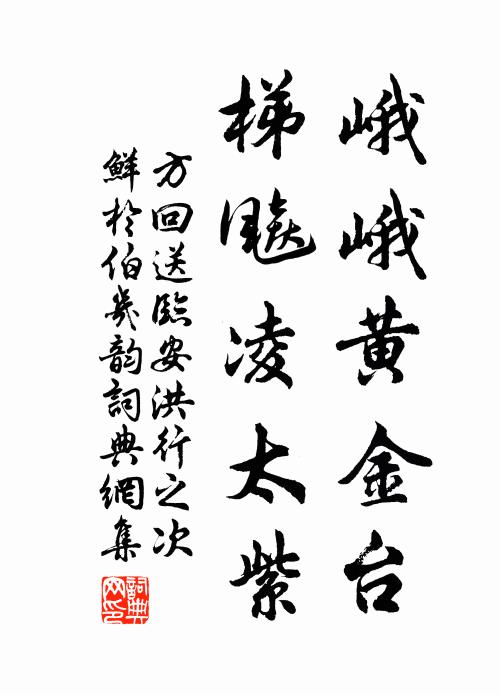 峨峨黄金台
梯飈凌太紫
方回送臨安洪行之次
鮮於伯幾韵詞典網集